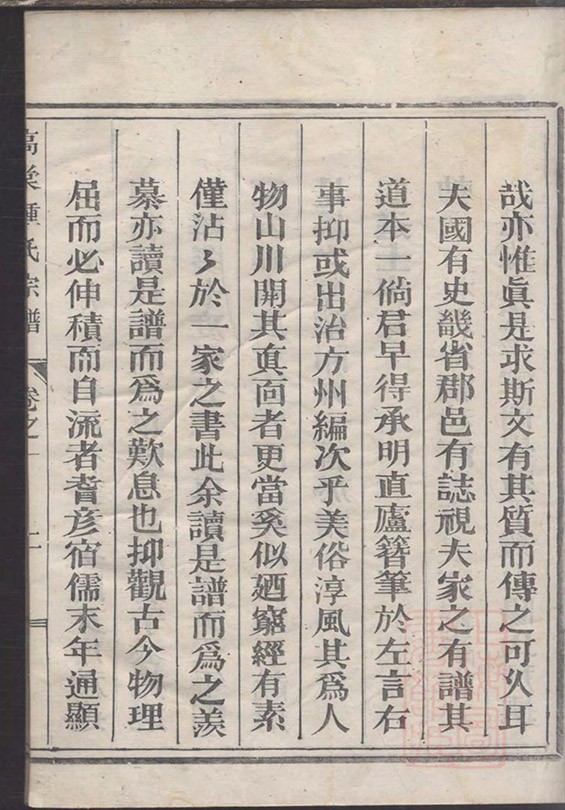 哉亦惟眞是求斯文有其質而傳之可久耳
夫國有史畿省郡邑有誌視夫家之有譜其
道本一倘君早得承明直廬簪筆於左言右
事抑或出治方州編次乎美俗淳風其爲人
物山川開其真面者更當奚似廼窮經有素
僅沾〻於一家之書此余讀是譜而爲之羨
慕亦讀是譜而爲之歎息也抑觀古今物理
屈而必伸積而自流者耆彥宿儒末年通顯
氏宗譜
卷之